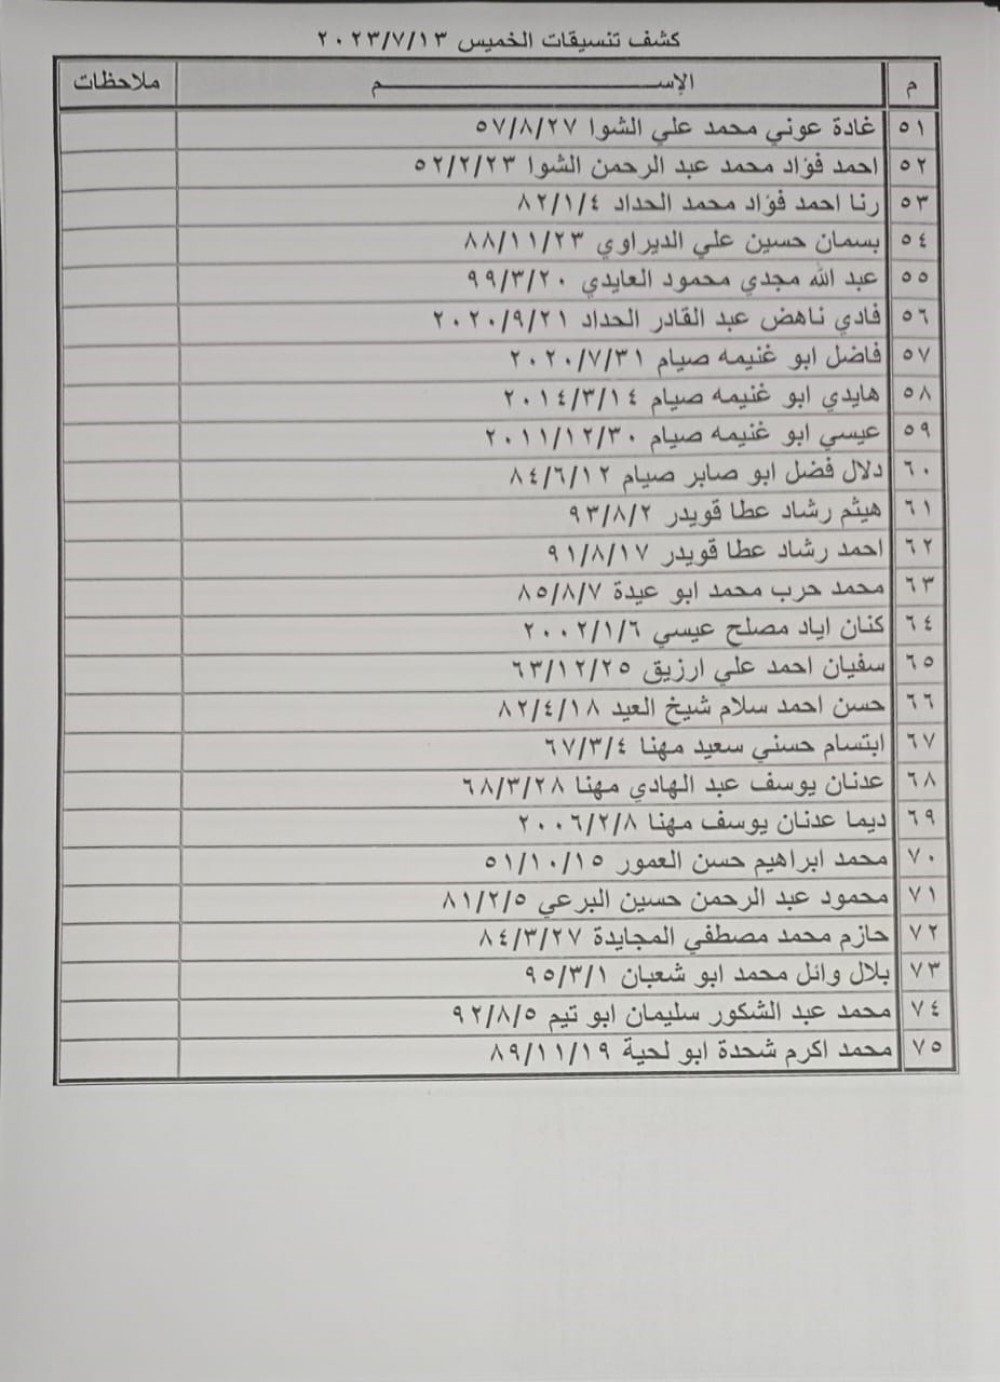 كشف تنسيقات الخميس ٢٠٢٣/٧/١٣
م الإســـــم ملاحظات
٥١ غادة عوني محمد علي الشوا ٥٧/٨/٢٧
٥٢ احمد فؤاد محمد عبد الرحمن الشوا ٥٢/٢/٢٣
٥٣ رنا احمد فؤاد محمد الحداد ٨٢/١/٤
٥٤ بسمان حسين علي الديراوي ٨٨/١١/٢٣
٥٥ عبد الله مجدي محمود العايدي ٩٩/٣/٢٠
٥٦ فادي ناهض عبد القادر الحداد ٢٠٢٠/٩/٢١
٥٧ فاضل ابو غنيمه صيام ٢٠٢٠/٧/٣١
٥٨ هايدي ابو غنيمه صيام ٢٠١٤/٣/١٤
٥٩ عيسي ابو غنيمه صيام ٢٠١١/١٢/٣٠
٦٠ دلال فضل ابو صابر صيام ٨٤/٦/١٢
٦١ هيثم رشاد عطا قويدر ٩٣/٨/٢
٦٢ احمد رشاد عطا قويدر ٩١/٨/١٧
٦٣ محمد حرب محمد ابو عيدة ٨٥/٨/٧
٦٤ كنان اياد مصلح عيسي ٢٠٠٢/١/٦
٦٥ سفيان احمد علي ارزيق ٦٣/١٢/٢٥
٦٦ حسن احمد سلام شيخ العيد ٨٢/٤/١٨
٦٧ ابتسام حسني سعيد مهنا ٦٧/٣/٤
٦٨ عدنان يوسف عبد الهادي مهنا ٦٨/٣/٢٨
٦٩ ديما عدنان يوسف مهنا ٢٠٠٦/٢/٨
٧٠ محمد ابراهيم حسن العمور ٥١/١٠/١٥
٧١ محمود عبد الرحمن حسين البرعي ٨١/٢/٥
٧٢ حازم محمد مصطفي المجايدة ٨٤/٣/٢٧
٧٣ بلال وائل محمد ابو شعبان ٩٥/٣/١
٧٤ محمد عبد الشكور سليمان ابو تيم ٩٢/٨/٥
٧٥ محمد اكرم شحدة ابو لحية ٨٩/١١/١٩